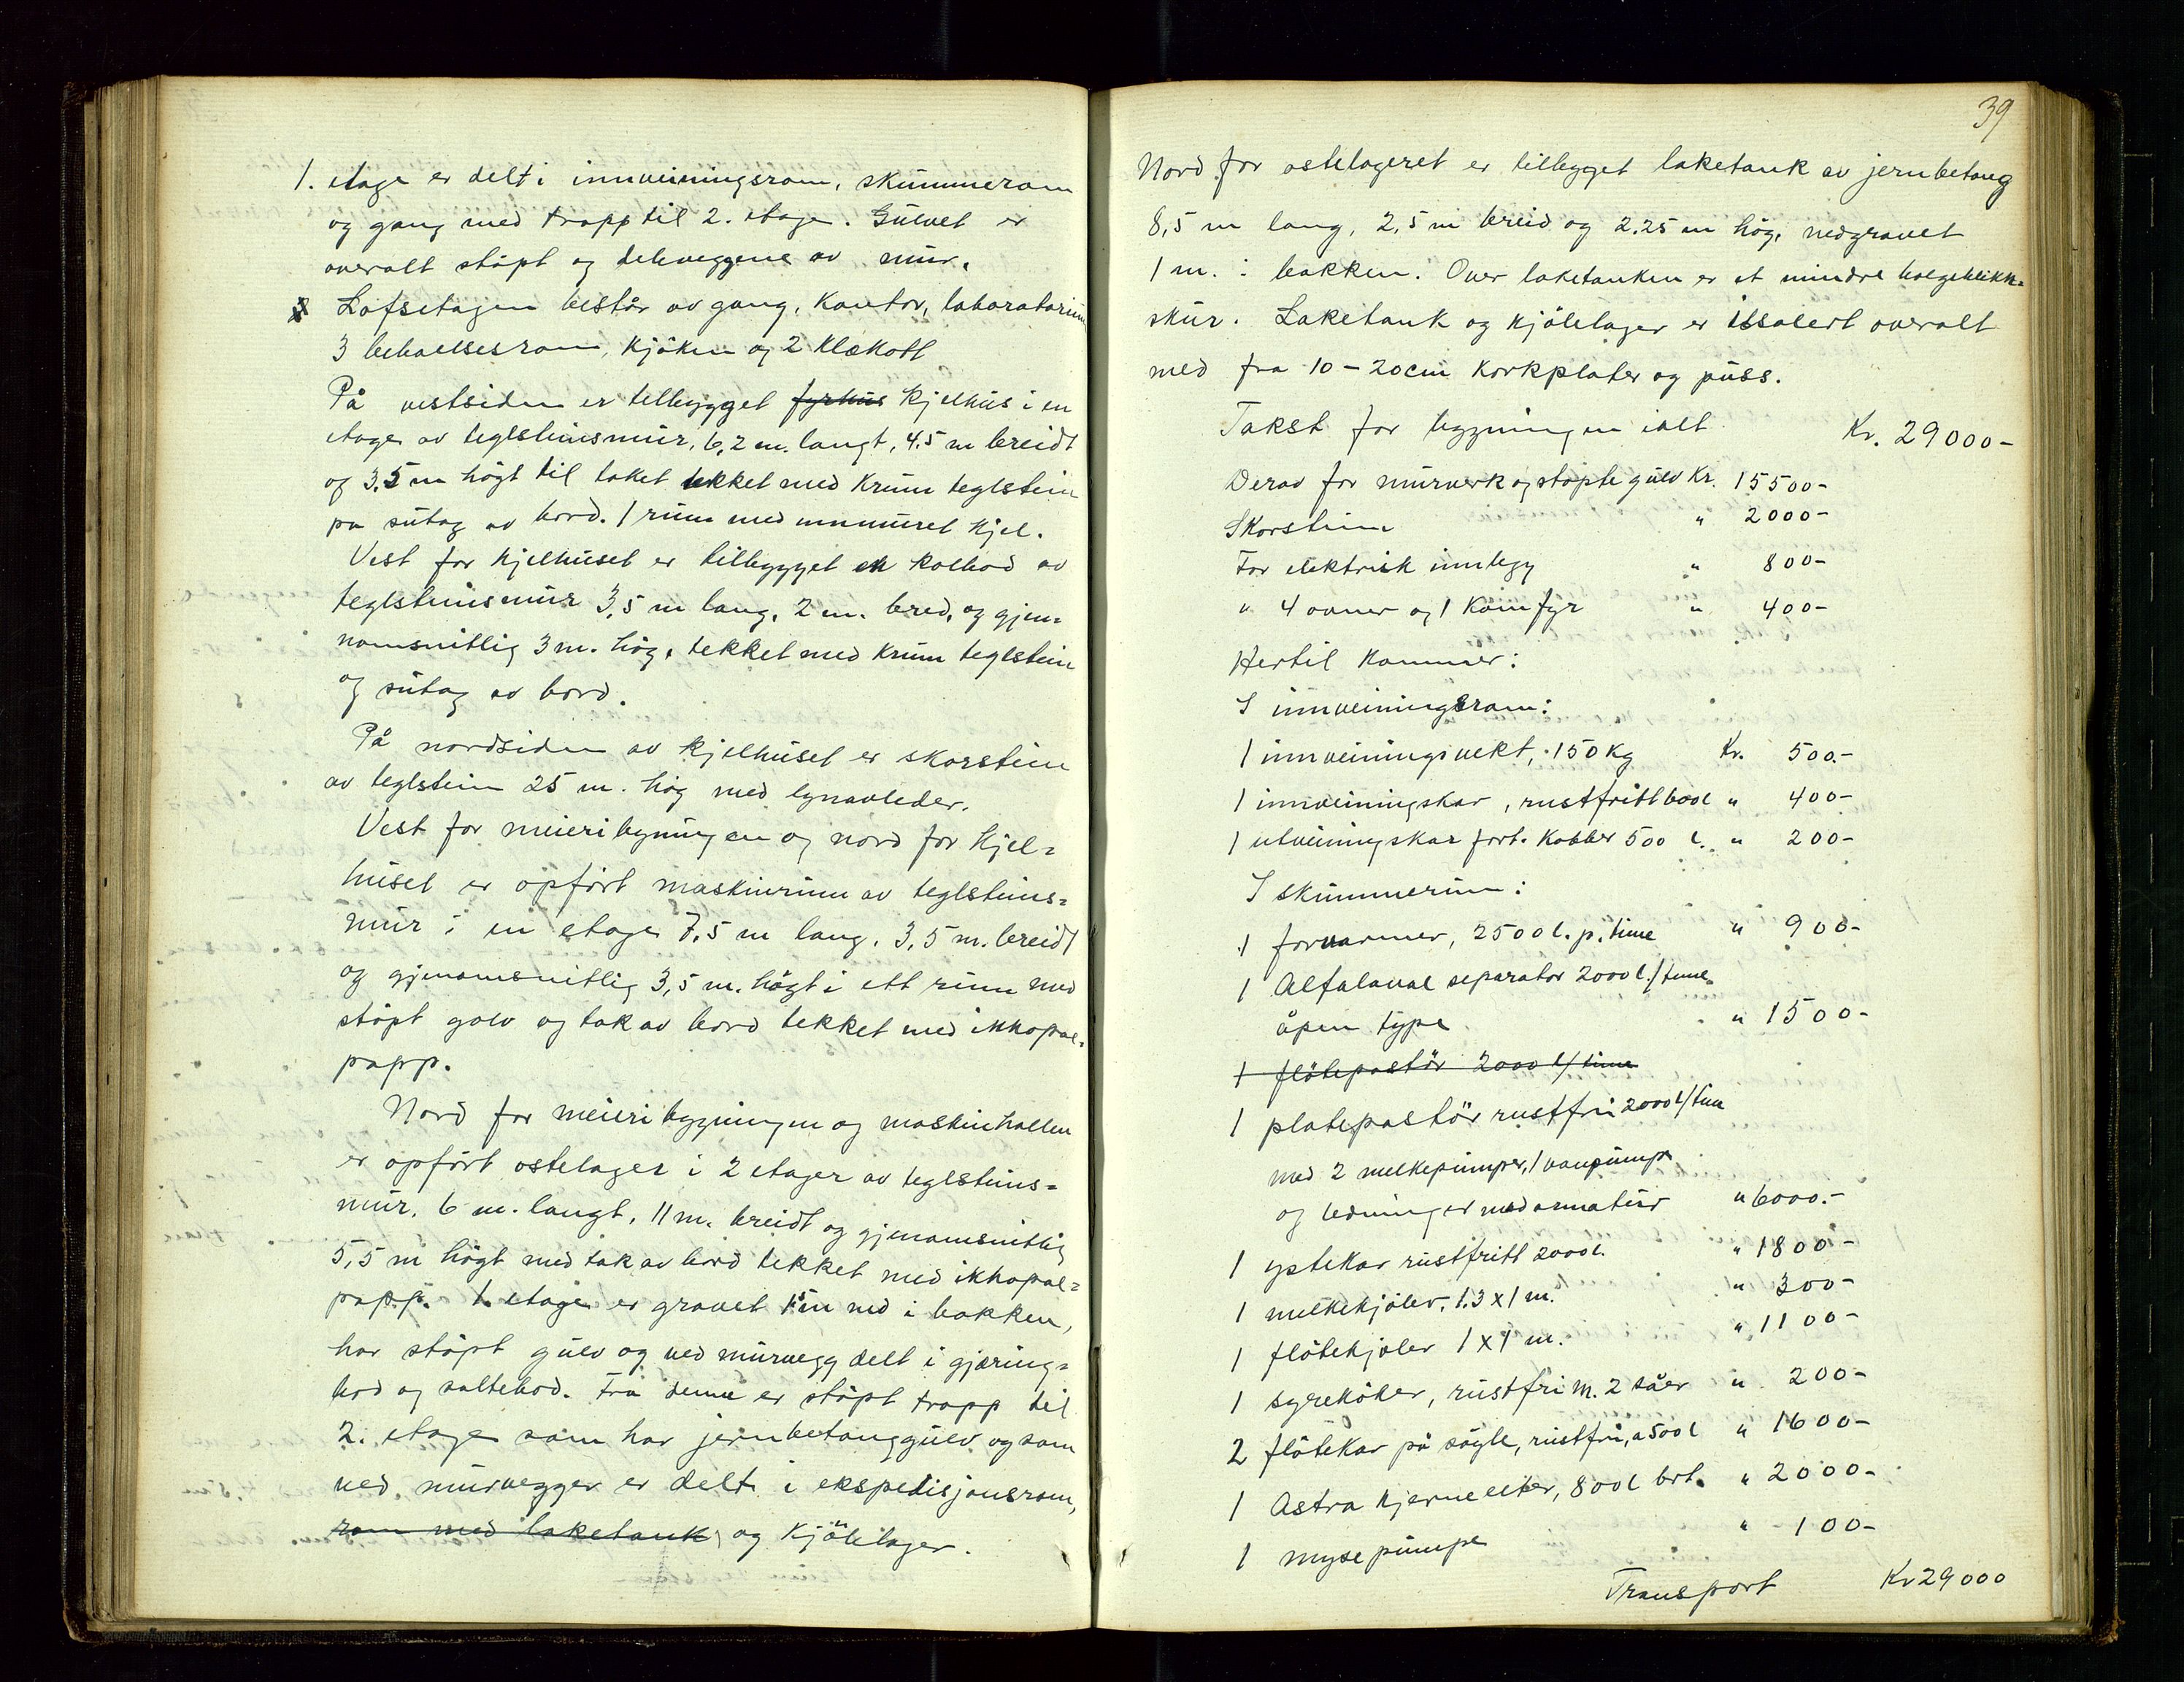 1. etage er delt i innveiningsrom, skummerom
og gang med trapp til 2. etage. Gulvet er
overalt støpt og deleveggene av mur.
Loftsetagen består av gang, kontor, laboratorium
3 beboelsesrom, kjøken og 2 klækott
På vestsiden er tilbygget fyrhus kjelhus i en
etage av teglsteinsmur, 6,2 m. langt, 4.5 m breidt
og 3.5 m høgt til taket tekket med krum teglstein
på sutag av bord. 1 rum med innmuret kjel.
Vest for kjelhuset er tilbygget en kolbod av
teglsteinsmur 3,5 m lang, 2 m. bred, og gjen=
nomsnitlig 3 m. høg, tekket med krum teglstein
og sutag av bord.
På nordsiden av kjelhuset er skorstein
av teglstein 25 m. høg med lynavleder.
Vest for meieribyningen og nord for kjel=
huset er opført maskinrum av teglsteins=
mur i en etage 7,5 m lang, 3,5 m. breidt
og gjenomsnitlig 3,5 m. høgt i ett rum med
støpt golv og tak av bord tekket med ikkopal=
papp.
Nord for meieribygningen og maskinhallen
er opført ostelager i 2 etager av teglsteins=
mur, 6 m. langt, 11 m. breidt og gjenomsnitlig
5,5 m høgt med tak av bord tekket med ikkopal=
papp. 1. etage er gravet 1 m ned i bakken,
har støpt gulv og ved murvegg delt i gjæring=
bod og saltebod. Fra denne er støpt trapp til
2. etage som har jernbetonggulv og som
ved murvegger er delt i ekspedisjonsrom,
rom med laketank og kjølelager.
39
Nord for ostelageret er tilbygget laketank av jernbetong
8,5 m lang, 2,5 m breid og 2.25 m høg, nedgravet
1 m. i bakken. Over laketanken er et mindre bølgeblikk=
skur. Laketank og kjølelager er isolert overalt
med fra 10 - 20 cm korkplater og puss.
Takst for bygningen ialt Kr. 29000-
Derav for murverk og støpte gulv Kr. 15500-
Skorstein " 2000-
For elektrisk innlegg " 800-
" 4 ovner og 1 komfyr " 400-
Hertil kommer:
I innveiningsrom:
1 innveiningsvekt, 150 kg Kr. 500.-
1 innveiningskar, rustfritt 600 l " 400-
1 utveiningskar fort. kobber 500 l. " 200-
I skummerum:
1 forvarmer, 2500 l. p. time " 900-
1 Alfalaval separator 2000 l./time
åpen type " 1500-
1 fløtepastør 2000 l/time
1 platepastør rustfri 2000 l/time
med 2 melkepumper, 1 vanpumpe
og ledninger med armatur " 6000.-
1 ystekar rustfritt 2000 l. " 1800-
1 melkekjøler, 1.3 x 1 m. " 300-
1 fløtekjøler 1 x 1 m. " 1100-
1 syrekoker, rustfri m. 2 såer " 200-
2 fløtekar på søyle, rustfri, a 500 l " 1600-
1 Astra kjerneelter, 800 l brt. " 2000-
1 mysepumpe " 100-
Transport Kr 29000